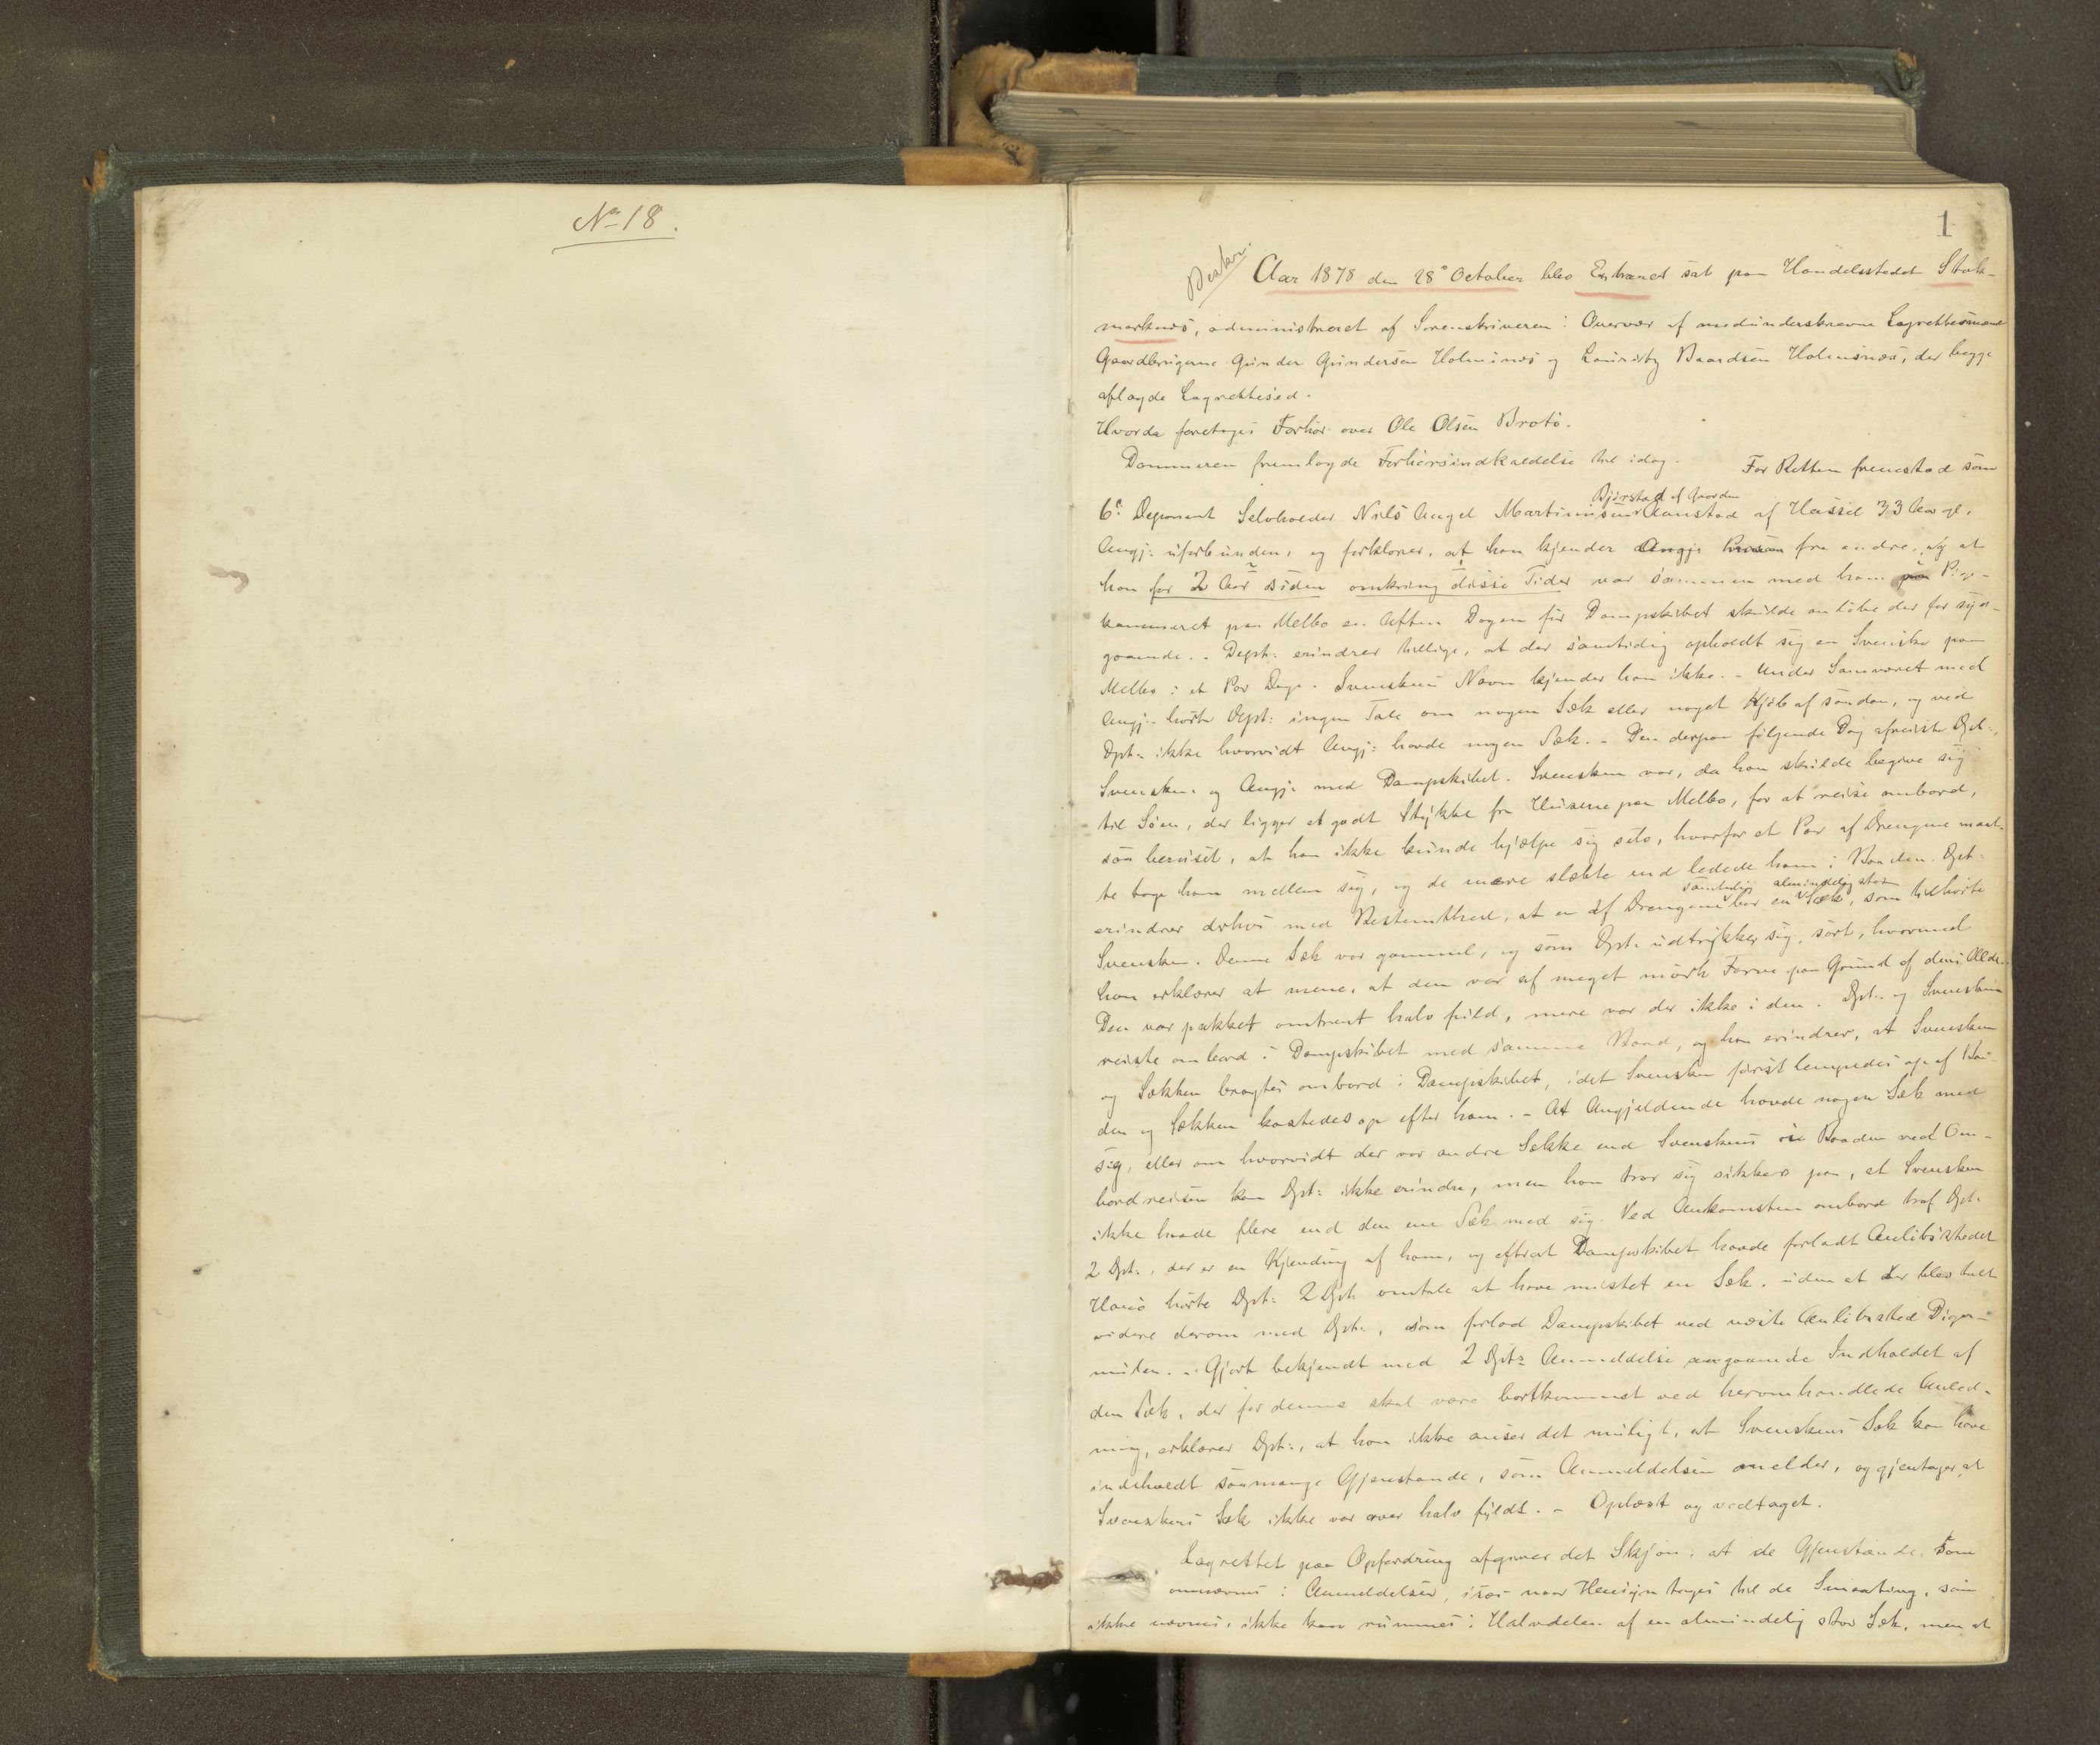 No 18.
1
Beskr.
Aar 1878 den 28de October blev Extraret sat paa Handelsstedet Stok-
marknæs, administreret af Sorenskriveren i Overvær af medunderskrevne Lagrettesmænd
Gaardbrugerne Gunder Gundersen Holmsnæs og Lauritz Baardsen Holmsnæs, der begge
aflagde Lagrettesed.
Hvorda foretoges Forhør over Ole Olsen Brotø.
Dommeren fremlagde Forhørsindkaldelse til idag. For Retten fremstod som
Bjørstad af Gaarden
6te Deponent Selvholder Nils Angel Martinussen Aanstad af Hassel 33 Aar gl.
Angj: uforbunden, og forklarer, at han kjender Angj: fra andre, og at
han for 2 Aar siden omkring disse Tider var sammen med ham paa Pige-
kammeret paa Melbo en Aften Dagen før Dampskibet skulde anløbe der for syd-
gaaende. - Depst: erindrer tillige, at der samtidig opholdt sig en Svenske paa
Melbo i et Par Dage. Svenskens Navn kjender han ikke. - Under Samværet med
Angj: hørte Dept: ingen Tale om nogen Sæk eller noget Kjøb af saadan, og ved
Dpt: ikke hvorvidt Angj: havde nogen Sæk. - Den derpaa følgende Dag afreiste Dpt:,
Svensken og Angj: med Dampskibet. Svensken var, da han skulde begive sig
til Søen, der ligger et godt Stykke fra Husene paa Melbo, for at reise ombord,
saa beruset, at han ikke kunde hjælpe sig selv, hvorfor et Par af Drengene maat-
te tage ham mellem sig, og de mere slæbte end ledede ham i Baaden. Dpt:
samtidig almindelig stor
erindrer derhos med Bestemthed, at en af Drengene bar en Sæk, som tilhørte
Svensken. Denne Sæk var gammel, og som Dpt: udtrykker sig, sort, hvormed
han erklærer at mene, at den var af meget mørk Farve paa Grund af dens Ælde.
Den var pakket omtrent halv fuld, mere var der ikke i den. Dpt: og Svensken
reiste ombord i Dampskibet med samme Baad, og han erindrer, at Svensken
og Sækken bragtes ombord i Dampskibet, idet Svensken først lempedes op af Baa-
den og Sækken kastedes op efter ham. - At Angjældende havde nogen Sæk med
sig, eller om hvorvidt der var andre Sække end Svenskens i Baaden ved Om-
bordreisen kan Dpt: ikke erindre, men han tror sig sikker paa, at Svensken
ikke havde flere end den ene Sæk med sig. Ved Ankomsten ombord traf Dpt:
2 Dpt:, der er en Kjending af ham, og efterat Dampskibet havde forladt Anløbsstedet
hørte Dpt: 2 Dpt: omtale at have mistet en Sæk, uden at der blev talt
videre derom med Dpt:, som forlod Dampskibet ved næste Anløbssted Diger-
mulen. - Gjort bekjendt med 2 Dpts Anmeldelse angaaende Indholdet af
den Sæk, der for denne skal være bortkommet ved heromhandlede Anled-
ning, erklærer Dpt:, at han ikke anser det muligt, at Svenskens Sæk kan have
indeholdt saamange Gjenstande, som Anmeldelsen melder, og gjentager, at
Svenskens Sæk ikke var over halv fyldt. - Oplæst og vedtaget.
Lagrettet paa Opfordring afgiver det Skjøn, at de Gjenstande, som
omnævnes i Anmeldelsen, især naar Hensyn tages til de Smaating, som
ikke nævnes, ikke kan rummes i Halvdelen af en almindelig stor Sæk, men at